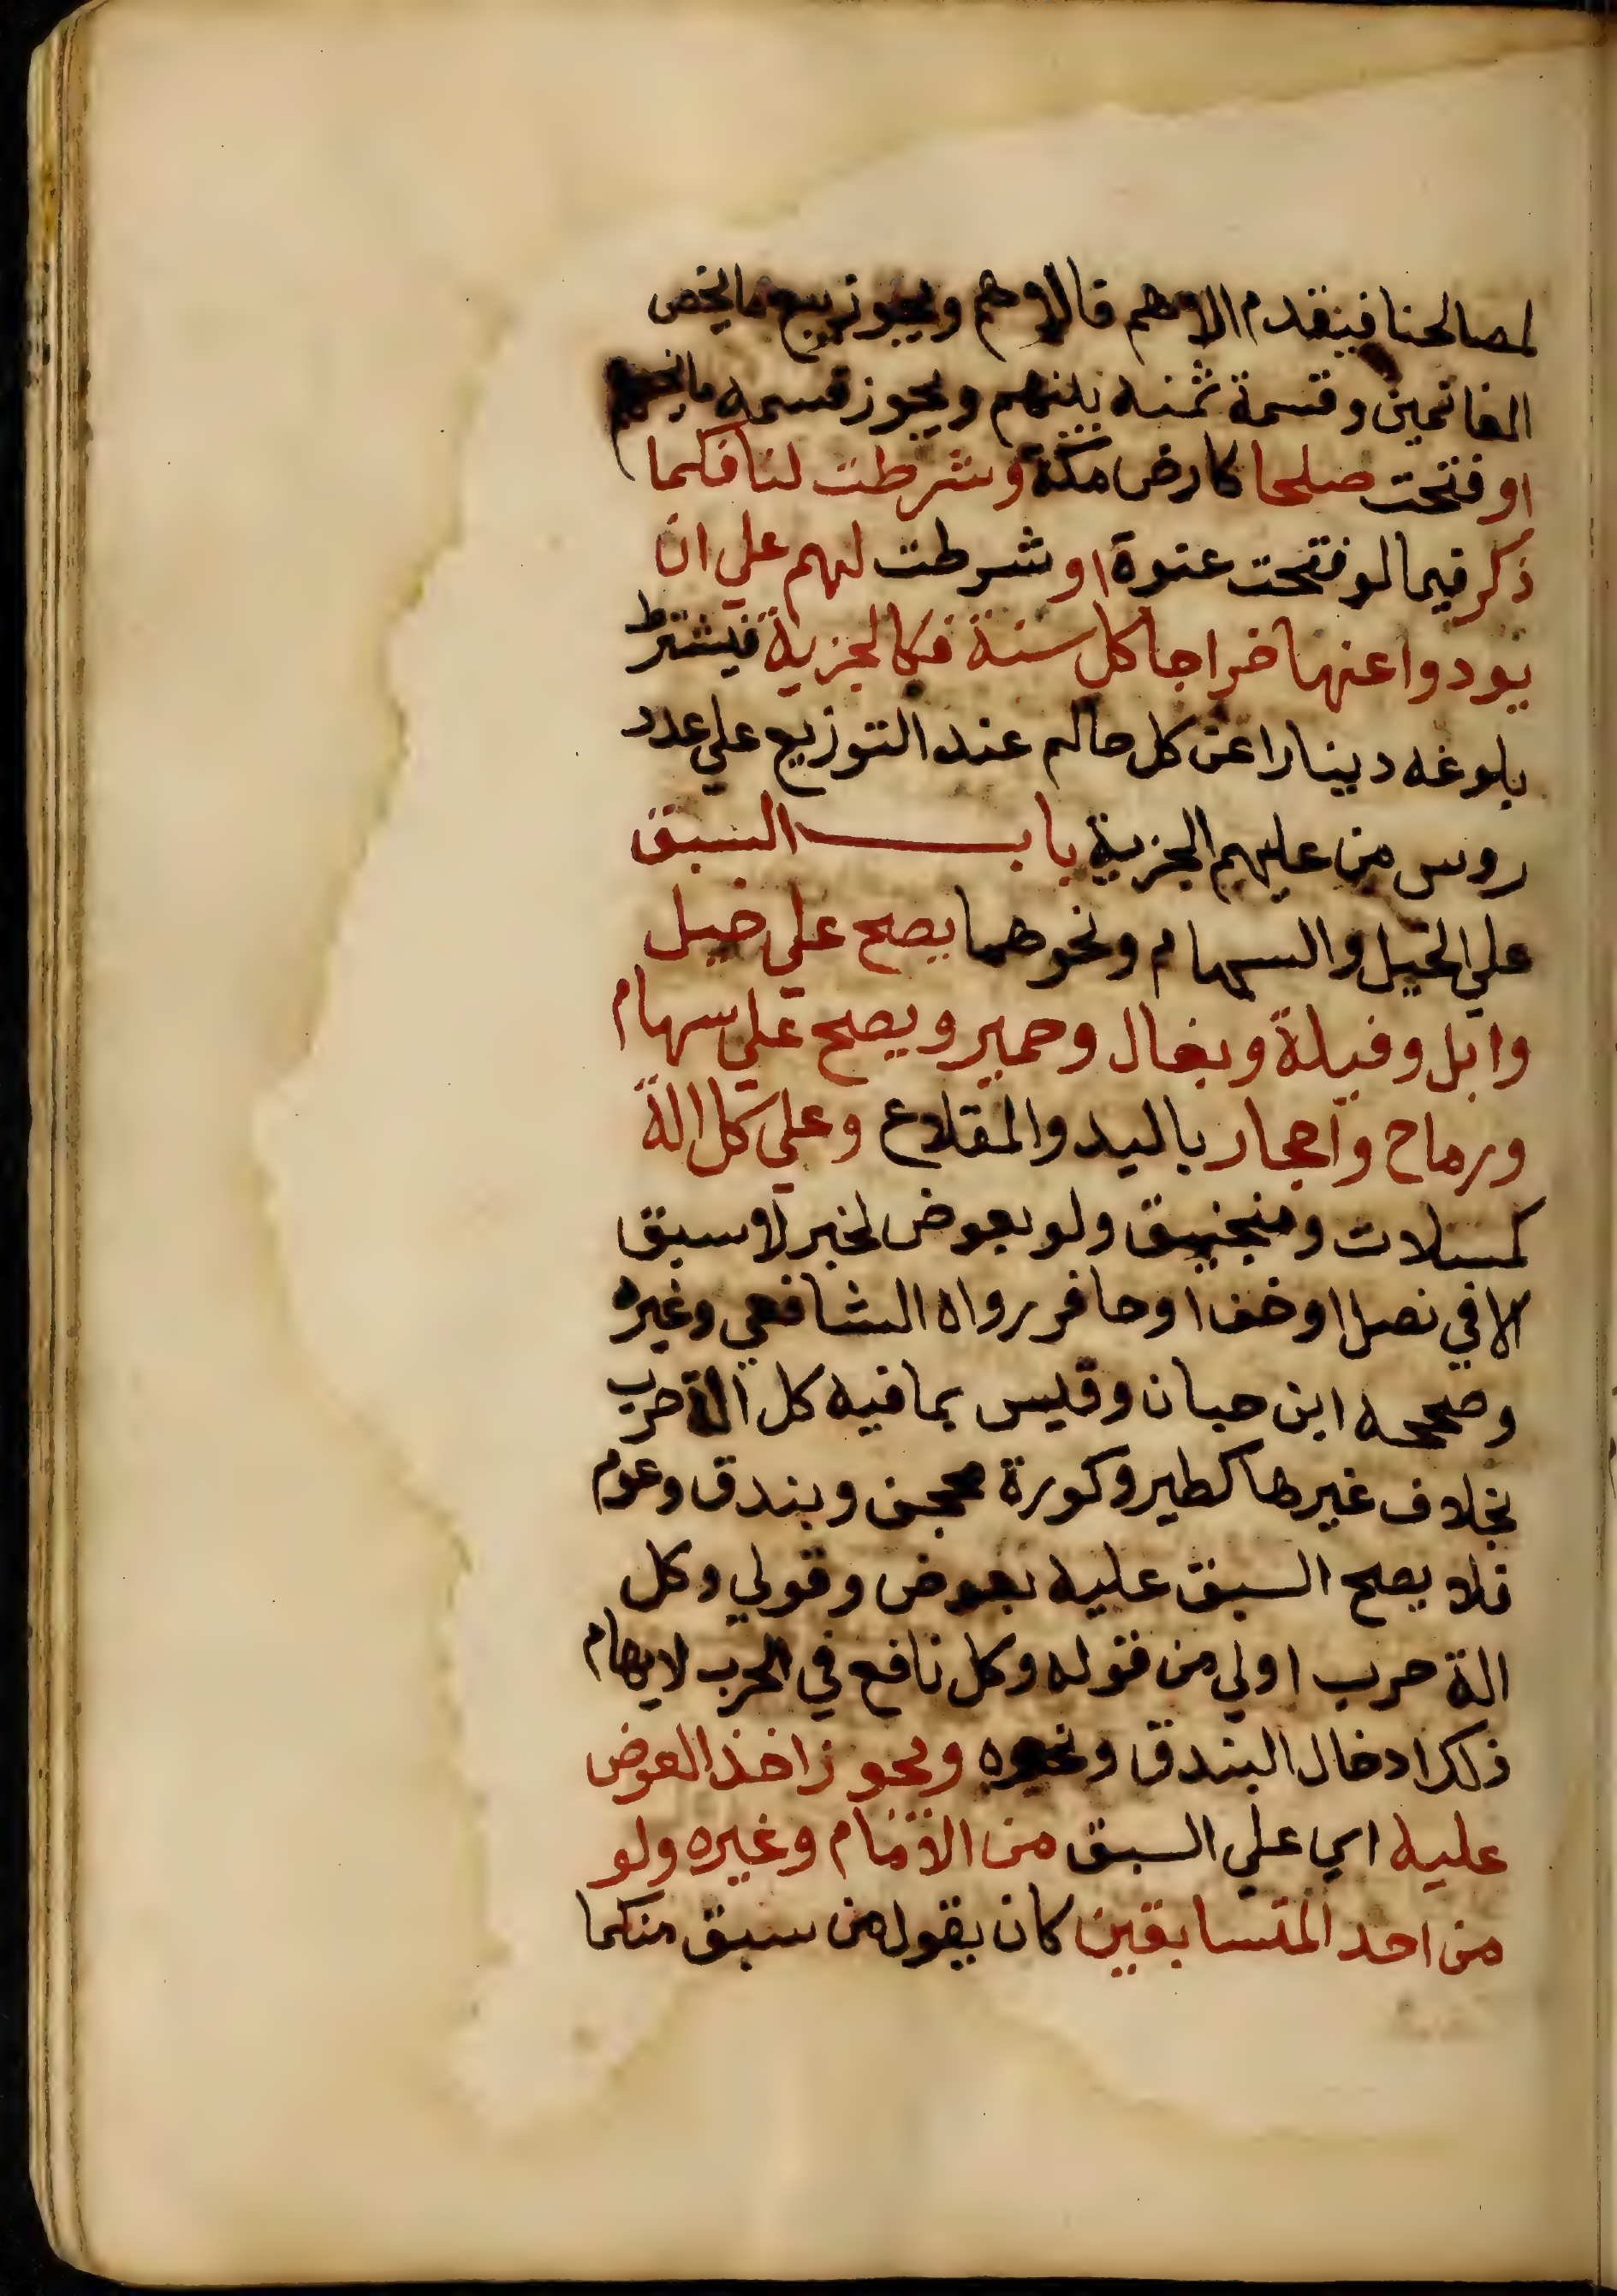 لمصالحنا فيتقدم الاهم فالاهم ويجوز بيع ما يخص
الغانمين وقسمة ثمنه بينهم ويجوز قسمه ما يخصهم
او فتحت صلحا كارض مكة وشرطت لنا فكما
ذكر فيما لو فتحت عنوة او شرطت لهم علي ان
يودوا عنها خراجا كل سنة فكالجزية فيشترط
بلوغه دينارا عن كل حالم عند التوزيع علي عدد
روس من عليهم الجزية باب السبق
علي الخيل والسهام ونحوهما يصح علي خيل
وابل وفيلة وبغال وحمير ويصح علي سهام
ورماح واحجار باليد والمقلاع وعلي كل الة
كمسلات ومنجنيق ولو بعوض لخبر لا سبق
الا في نصل او خف او حافر رواه الشافعي وغيره
وصححه ابن حبان وقيس بما فيه كل الة حرب
بخلاف غيرها كطير وكورة محجن وبندق وعوم
فلا يصح السبق عليه بعوض وقولي وكل
الة حرب اولي من قوله وكل نافع في الحرب لايهام
ذلك ادخال البندق ونحوه ويجوز اخذ العوض
عليه اي علي السبق من الامام وغيره ولو
من احد المتسابقين كان يقول من سبق منكما